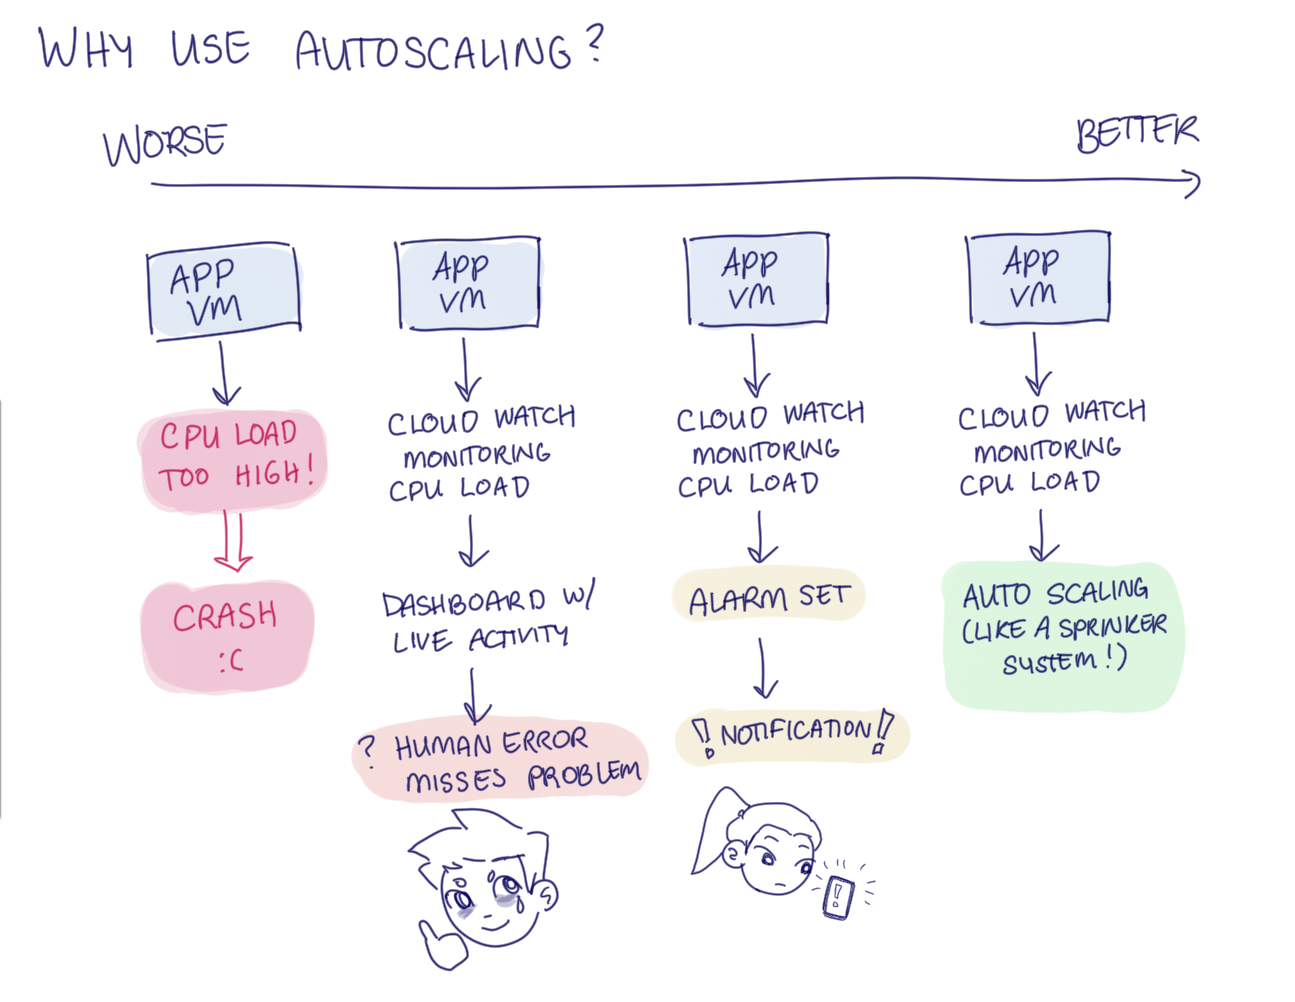 WHY USE AUTOSCALING?
WORSE
BETTER
APP
VM
CPU LOAD
TOO HIGH!
CRASH
:C
APP
VM
CLOUD WATCH
MONITORING
CPU LOAD
DASHBOARD W/
LIVE ACTIVITY
? HUMAN ERROR
MISSES PROBLEM
APP
VM
CLOUD WATCH
MONITORING
CPU LOAD
ALARM SET
! NOTIFICATION!
!
APP
VM
CLOUD WATCH
MONITORING
CPU LOAD
AUTO SCALING
(LIKE A SPRINKER
SYSTEM!)